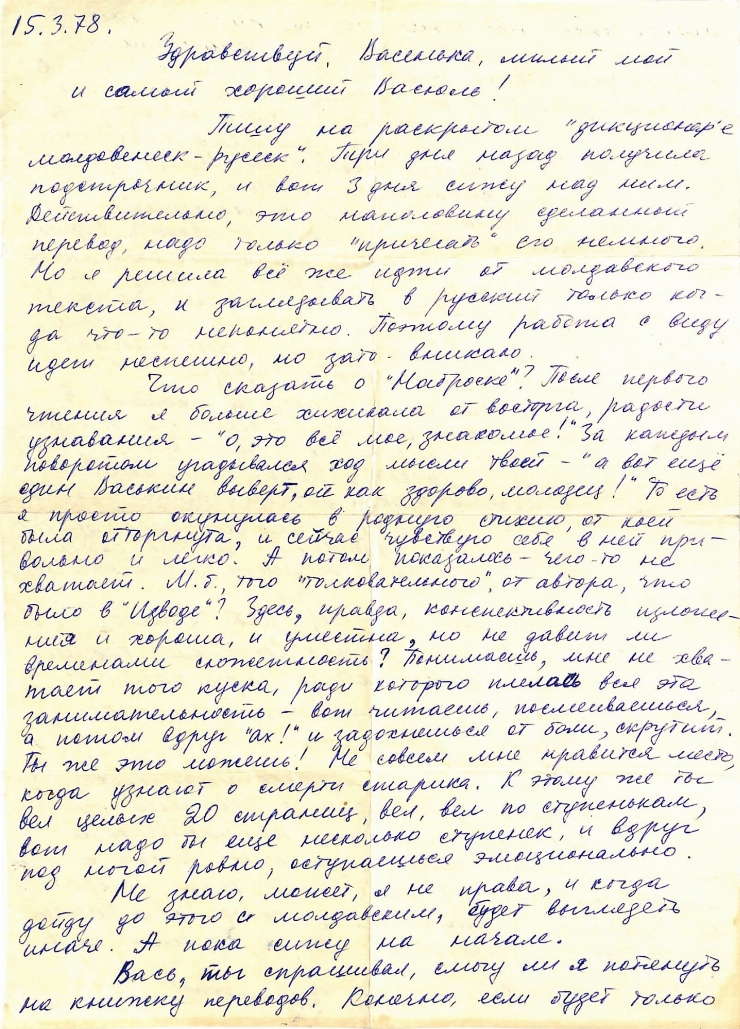 15.3.78.
Здравствуй, Васенька, милый мой
и самый хороший Васюль!
Пишу на раскрытом "дикционар'е
молдовенеск-русеск". Три дня назад получила
подстрочник, и вот 3 дня сижу над ним.
Действительно, это наполовину сделанный
перевод, надо только "причесать" его немного.
Но я решила всё же идти от молдавского
текста, и заглядывать в русский только ког-
да что-то непонятно. Поэтому работа с виду
идет неспешно, но зато - вникаю.
Что сказать о "Наброске"? После первого
чтения я больше хихикала от восторга, радости
узнавания - "о, это всё мое, знакомое!" За каждым
поворотом угадывался ход мысли твоей - "а вот ещё
один Васькин выверт, ой как здорово, молодец!" То есть
я просто окунулась в родную стихию, от коей
была отторгнута, и сейчас чувствую себя в ней при-
вольно и легко. А потом показалось - чего-то не
хватает. М.б., того "толковательного", от автора, что
было в "Изводе"? Здесь, правда, конспективность изложе-
ния и хороша, и уместна, но не давит ли
временами сюжетность? Понимаешь, мне не хва-
тает того куска, ради которого плелась вся эта
занимательность - вот читаешь, посмеиваешься,
а потом вдруг "ах!" и задохнешься от боли, скрутит.
Ты же это можешь! Не совсем мне нравится место,
когда узнают о смерти старика. К этому же ты
вел целых 20 страниц, вел, вел по ступенькам,
вот надо бы еще несколько ступенек, и вдруг
под ногой ровно, оступаешься эмоционально.
Не знаю, может, я не права, и когда
дойду до этого с молдавским, будет выглядеть
иначе. А пока сижу на начале.
Вась, ты спрашивал, смогу ли я потянуть
на книжку переводов. Конечно, если будет только